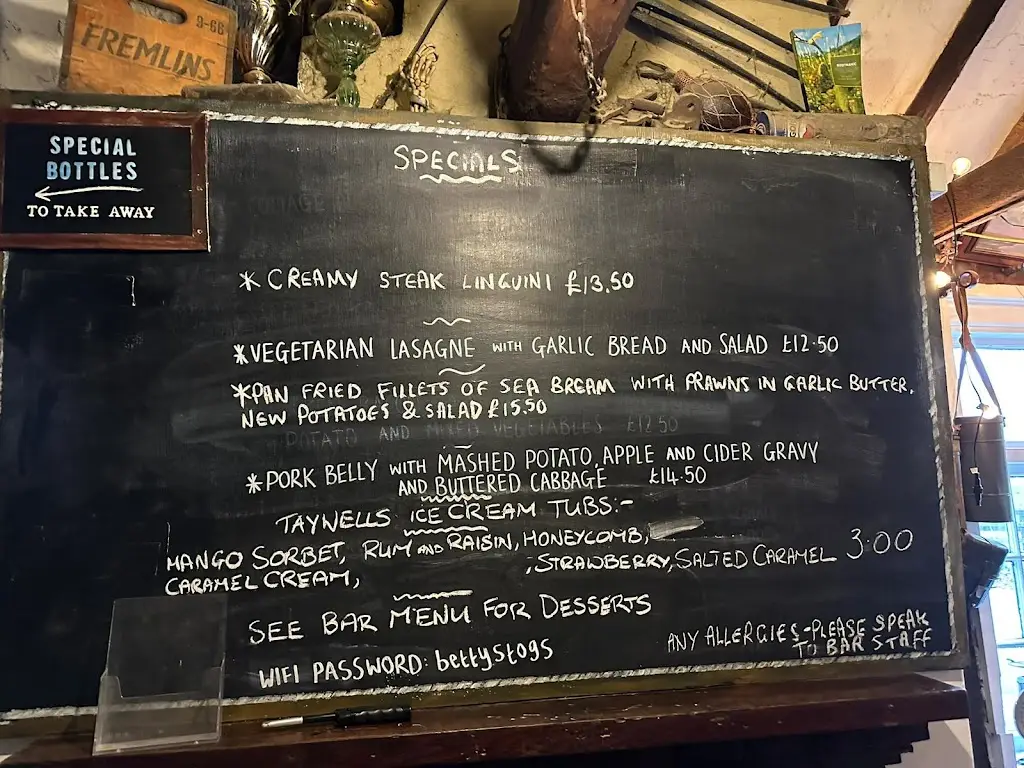 9-66
FREMLINS
SPECIAL
BOTTLES
TO TAKE AWAY
SPECIALS
* CREAMY STEAK LINGUINI £13.50
*VEGETARIAN LASAGNE WITH GARLIC BREAD AND SALAD £12.50
*PAN FRIED FILLETS OF SEA BREAM WITH PRAWNS IN GARLIC BUTTER,
NEW POTATOES & SALAD £15.50
POTATO AND MIXED VEGETABLES £12.50
*PORK BELLY WITH MASHED POTATO, APPLE AND CIDER GRAVY
AND BUTTERED CABBAGE £14.50
TAYNELLS ICE CREAM TUBS:-
MANGO SORBET, RUM AND RAISIN, HONEYCOMB,
CARAMEL CREAM, ,STRAWBERRY, SALTED CARAMEL 3.00
SEE BAR MENU FOR DESSERTS
WIFI PASSWORD: bettystogs
ANY ALLERGIES-PLEASE SPEAK
TO BAR STAFF